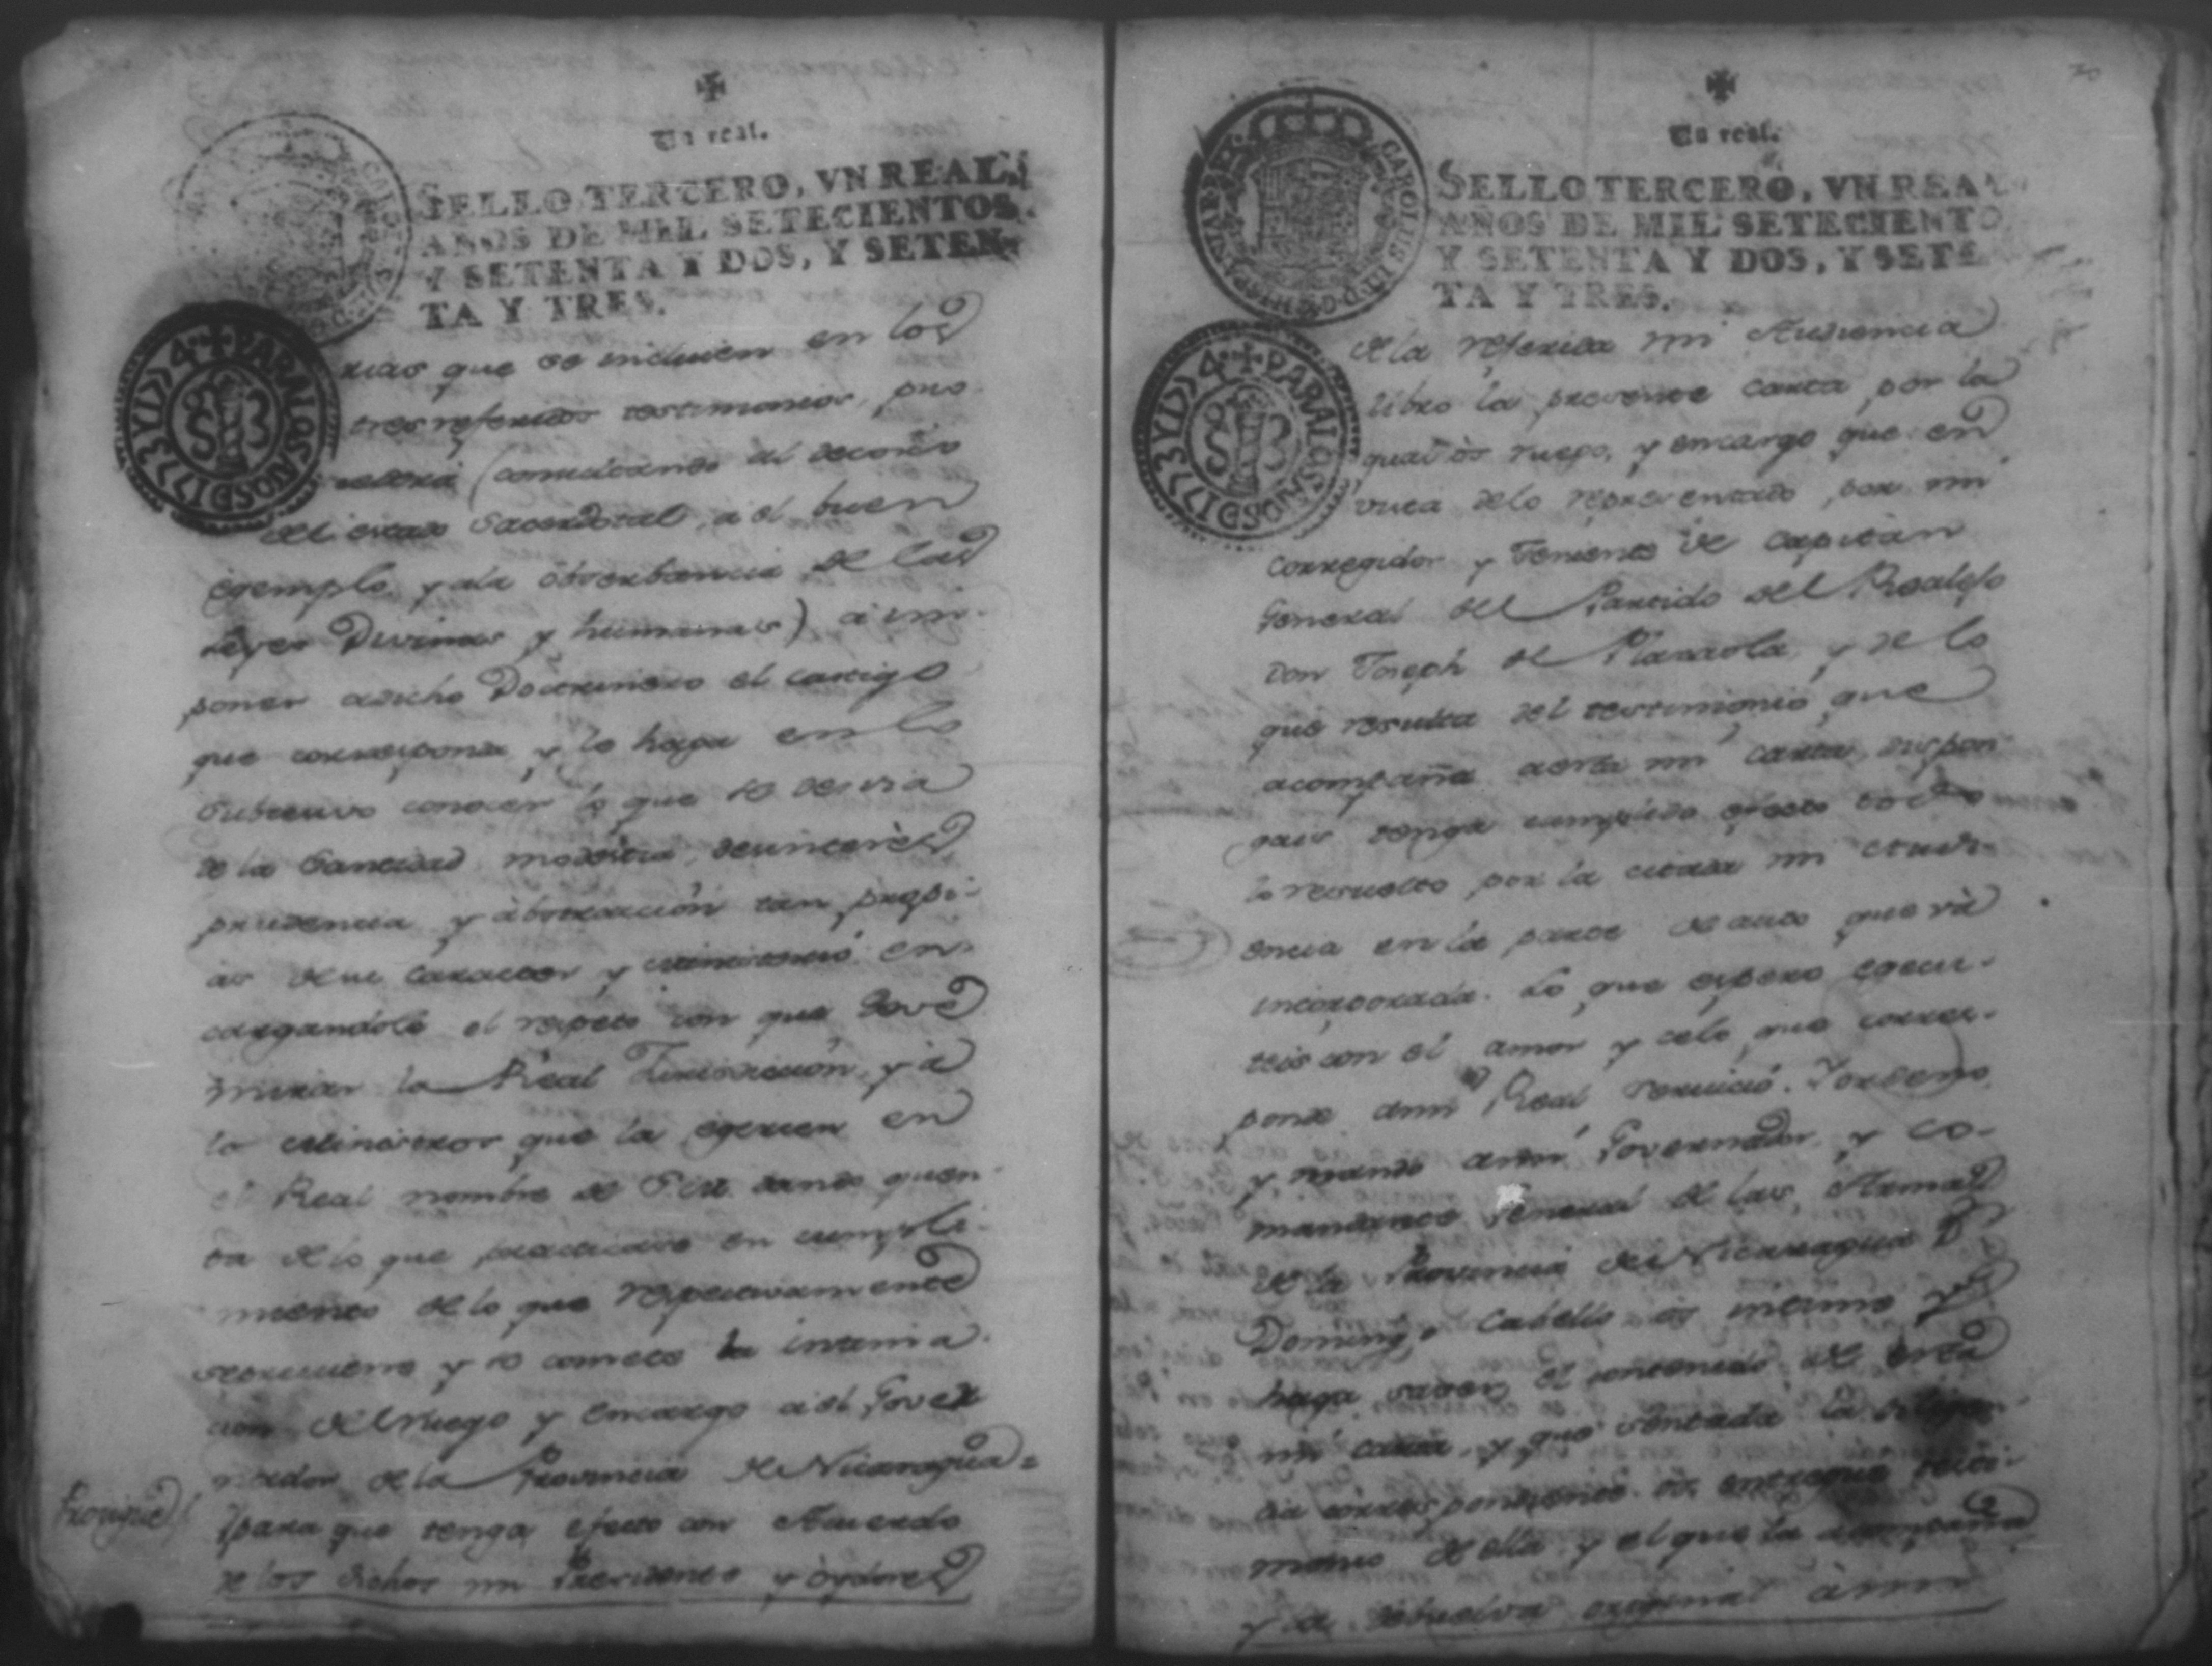 Un real.
SELLO TERCERO, VN REAL,
AÑOS DE MIL SETECIENTOS
Y SETENTA Y DOS, Y SETEN-
TA Y TRES.
PARA LOS AÑOS D 1773 Y 1774
rias que se incluien en los
tres referidos testimonios, pro
(considerando al decoro
del estado Sacerdotal, a el buen
egemplo, y a la obserbancia de las
Leyes Divinas y humanas) a im-
poner a dicho Doctrinero el castigo
que corresponda y le haga en lo
subcesivo conocer lo que se desvia
de la Santidad modestia, desinterès
prudencia y abstraccion tan propi-
as de su caracter y ministerio en-
cargandole el respeto con que deve
mirar la Real Jurisdiccion, y à
los Ministros que la egercen en
el Real nombre de S. M. dando quen-
ta de lo que practicare en cumpli-
miento de lo que respectivamente
y se comete la intima
cion del ruego y encargo a el Gover
nador de la Provincia de Nicaragua=
Prosigue
Y para que tenga efecto con Acuerdo
de los dichos mi Presidente y Oydores
Un real.
SELLO TERCERO, VN REAL
AÑOS DE MIL SETECIENTO
Y SETENTA Y DOS, Y SETE
TA Y TRES.
CAROLUS III D. G. HISPANIAR REX
PARA LOS AÑOS D 1773 Y 1774
de la referida mi Audiencia
libro la presente carta por la
qual os ruego, y encargo que en
vista de lo representado por mi
Corregidor y Teniente de Capitan
General del Partido del Realejo
Don Joseph de Plazaola, y de lo
que resulta del testimonio que
acompaña a esta mi carta, dispon
gais tenga cumplido efecto todo
lo resuelto por la citada mi Audi-
encia en la parte de auto que và
incorporada. Lo que espero egecu-
teis con el amor y celo que corres-
ponde a mi Real servicio. Y ordeno
y mando a mi Governador, y Co-
mandante General de las Armas
de la Provincia de Nicaragua Dn
Domingo Cabello os intime y
haga saver el contenido de esta
mi carta, y que sentada la diligen-
cia correspondiente os entregue testi-
monio de ella y el que la acompaña
y se debuelva original à mi